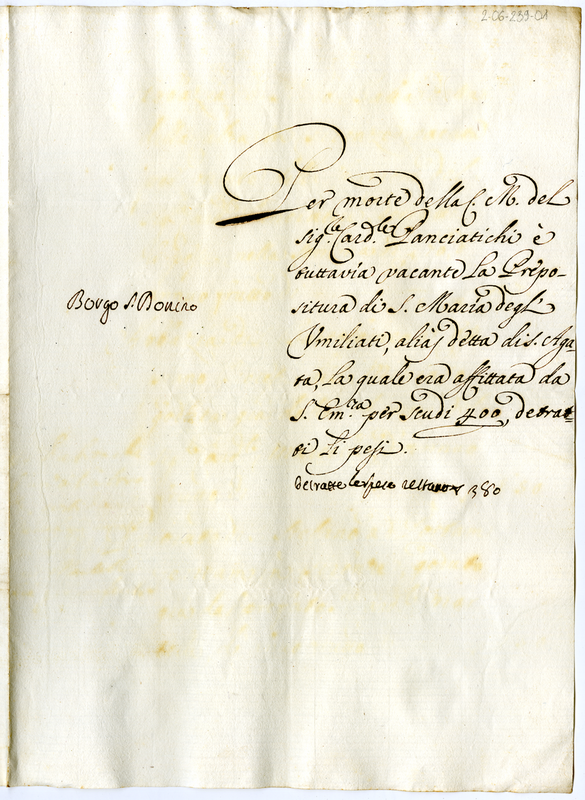 2-06-239-01
Per morte della C. M. del
Sig.le Card.le Panciatichi è
tuttavia vacante la Prepo-
situra di S. Maria degl'
Umiliati, alias detta di S. Aga-
ta, la quale era affittata da
S. Em.za per scudi 400, detrat-
ti li pesi.
Borgo S. Donino
detratte le spese restano 380